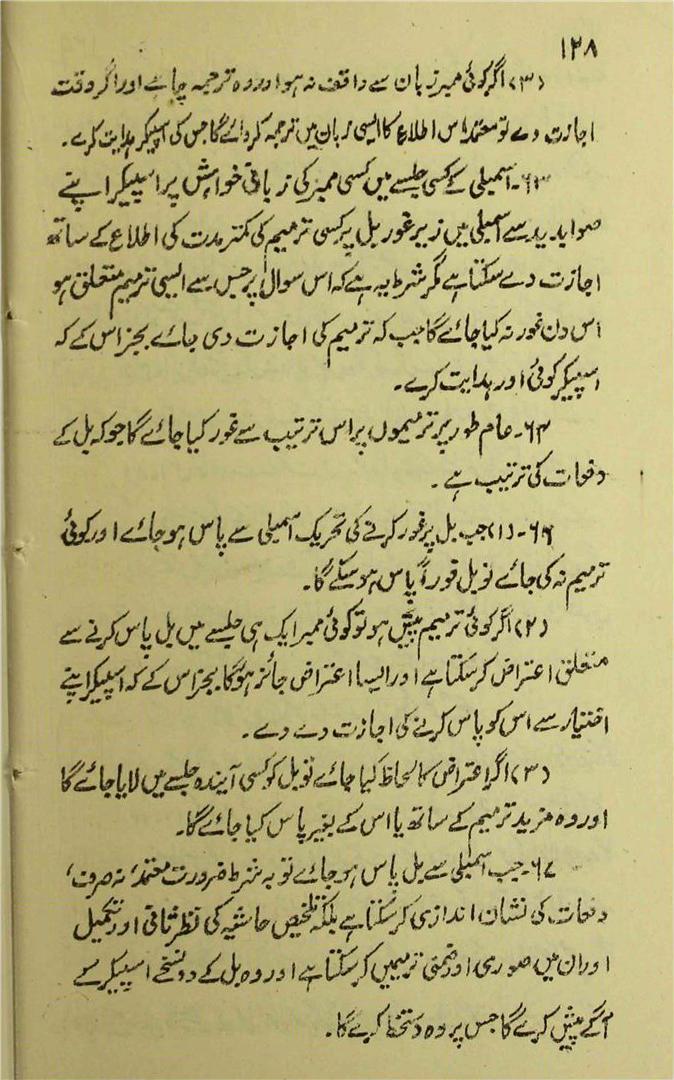 ۱۲۸
(۳) اگر کوئی ممبر زبان سے واقف نہ ہو اور وہ ترجمہ چاہے اور اگر وقت
اجازت دے تو معتمد اس اطلاع کا ایسی زبان میں ترجمہ کردائے گا جس کی اسپیکر ہدایت کرے۔
۶۳۔ اسمبلی کے کسی جلسے میں کسی ممبر کی زبانی خواہش پر اسپیکر اپنے
صوابدید سے اسمبلی میں زیر غور بل پر کسی ترمیم کی کمتر مدت کی اطلاع کے ساتھ
اجازت دے سکتا ہے مگر شرط یہ ہے کہ اس سوال پر جس سے ایسی ترمیم متعلق ہو
اس دن غور نہ کیا جائے گا جب کہ ترمیم کی اجازت دی جائے بجز اس کے کہ
اسپیکر کوئی اور ہدایت کرے۔
۶۴۔ عام طور پر ترمیموں پر اس ترتیب سے غور کیا جائے گا جو کہ بل کے
دفعات کی ترتیب ہے۔
۶۶۔ (۱) جب بل پر غور کرنے کی تحریک اسمبلی سے پاس ہوجائے اور کوئی
ترمیم نہ کی جائے تو بل فوراً پاس ہوسکے گا۔
(۲) اگر کوئی ترمیم پیش ہو تو کوئی ممبر ایک ہی جلسے میں بل پاس کرنے سے
متعلق اعتراض کرسکتا ہے اور ایسا اعتراض جائز ہوگا بجز اس کے کہ اسپیکر اپنے
اختیار سے اس کو پاس کرنے کی اجازت دے دے۔
(۳) اگر اعتراض کا لحاظ کیا جائے تو بل کو کسی آیندہ جلسے میں لایا جائے گا
اور وہ مزید ترمیم کے ساتھ یا اس کے بغیر پاس کیا جائے گا۔
۶۷۔ جب اسمبلی سے بل پاس ہوجائے تو بہ شرط ضرورت معتمد، نہ صرف،
دفعات کی نشان اندازی کرسکتا ہے بلکہ تلخیص حاشیہ کی نظر ثانی اور تکمیل
اور ان میں صوری اور ضمنی ترمیمیں کرسکتا ہے اور وہ بل کے دو نسخے اسپیکر کے
آگے پیش کرے گا جس پر وہ دستخط کرے گا۔